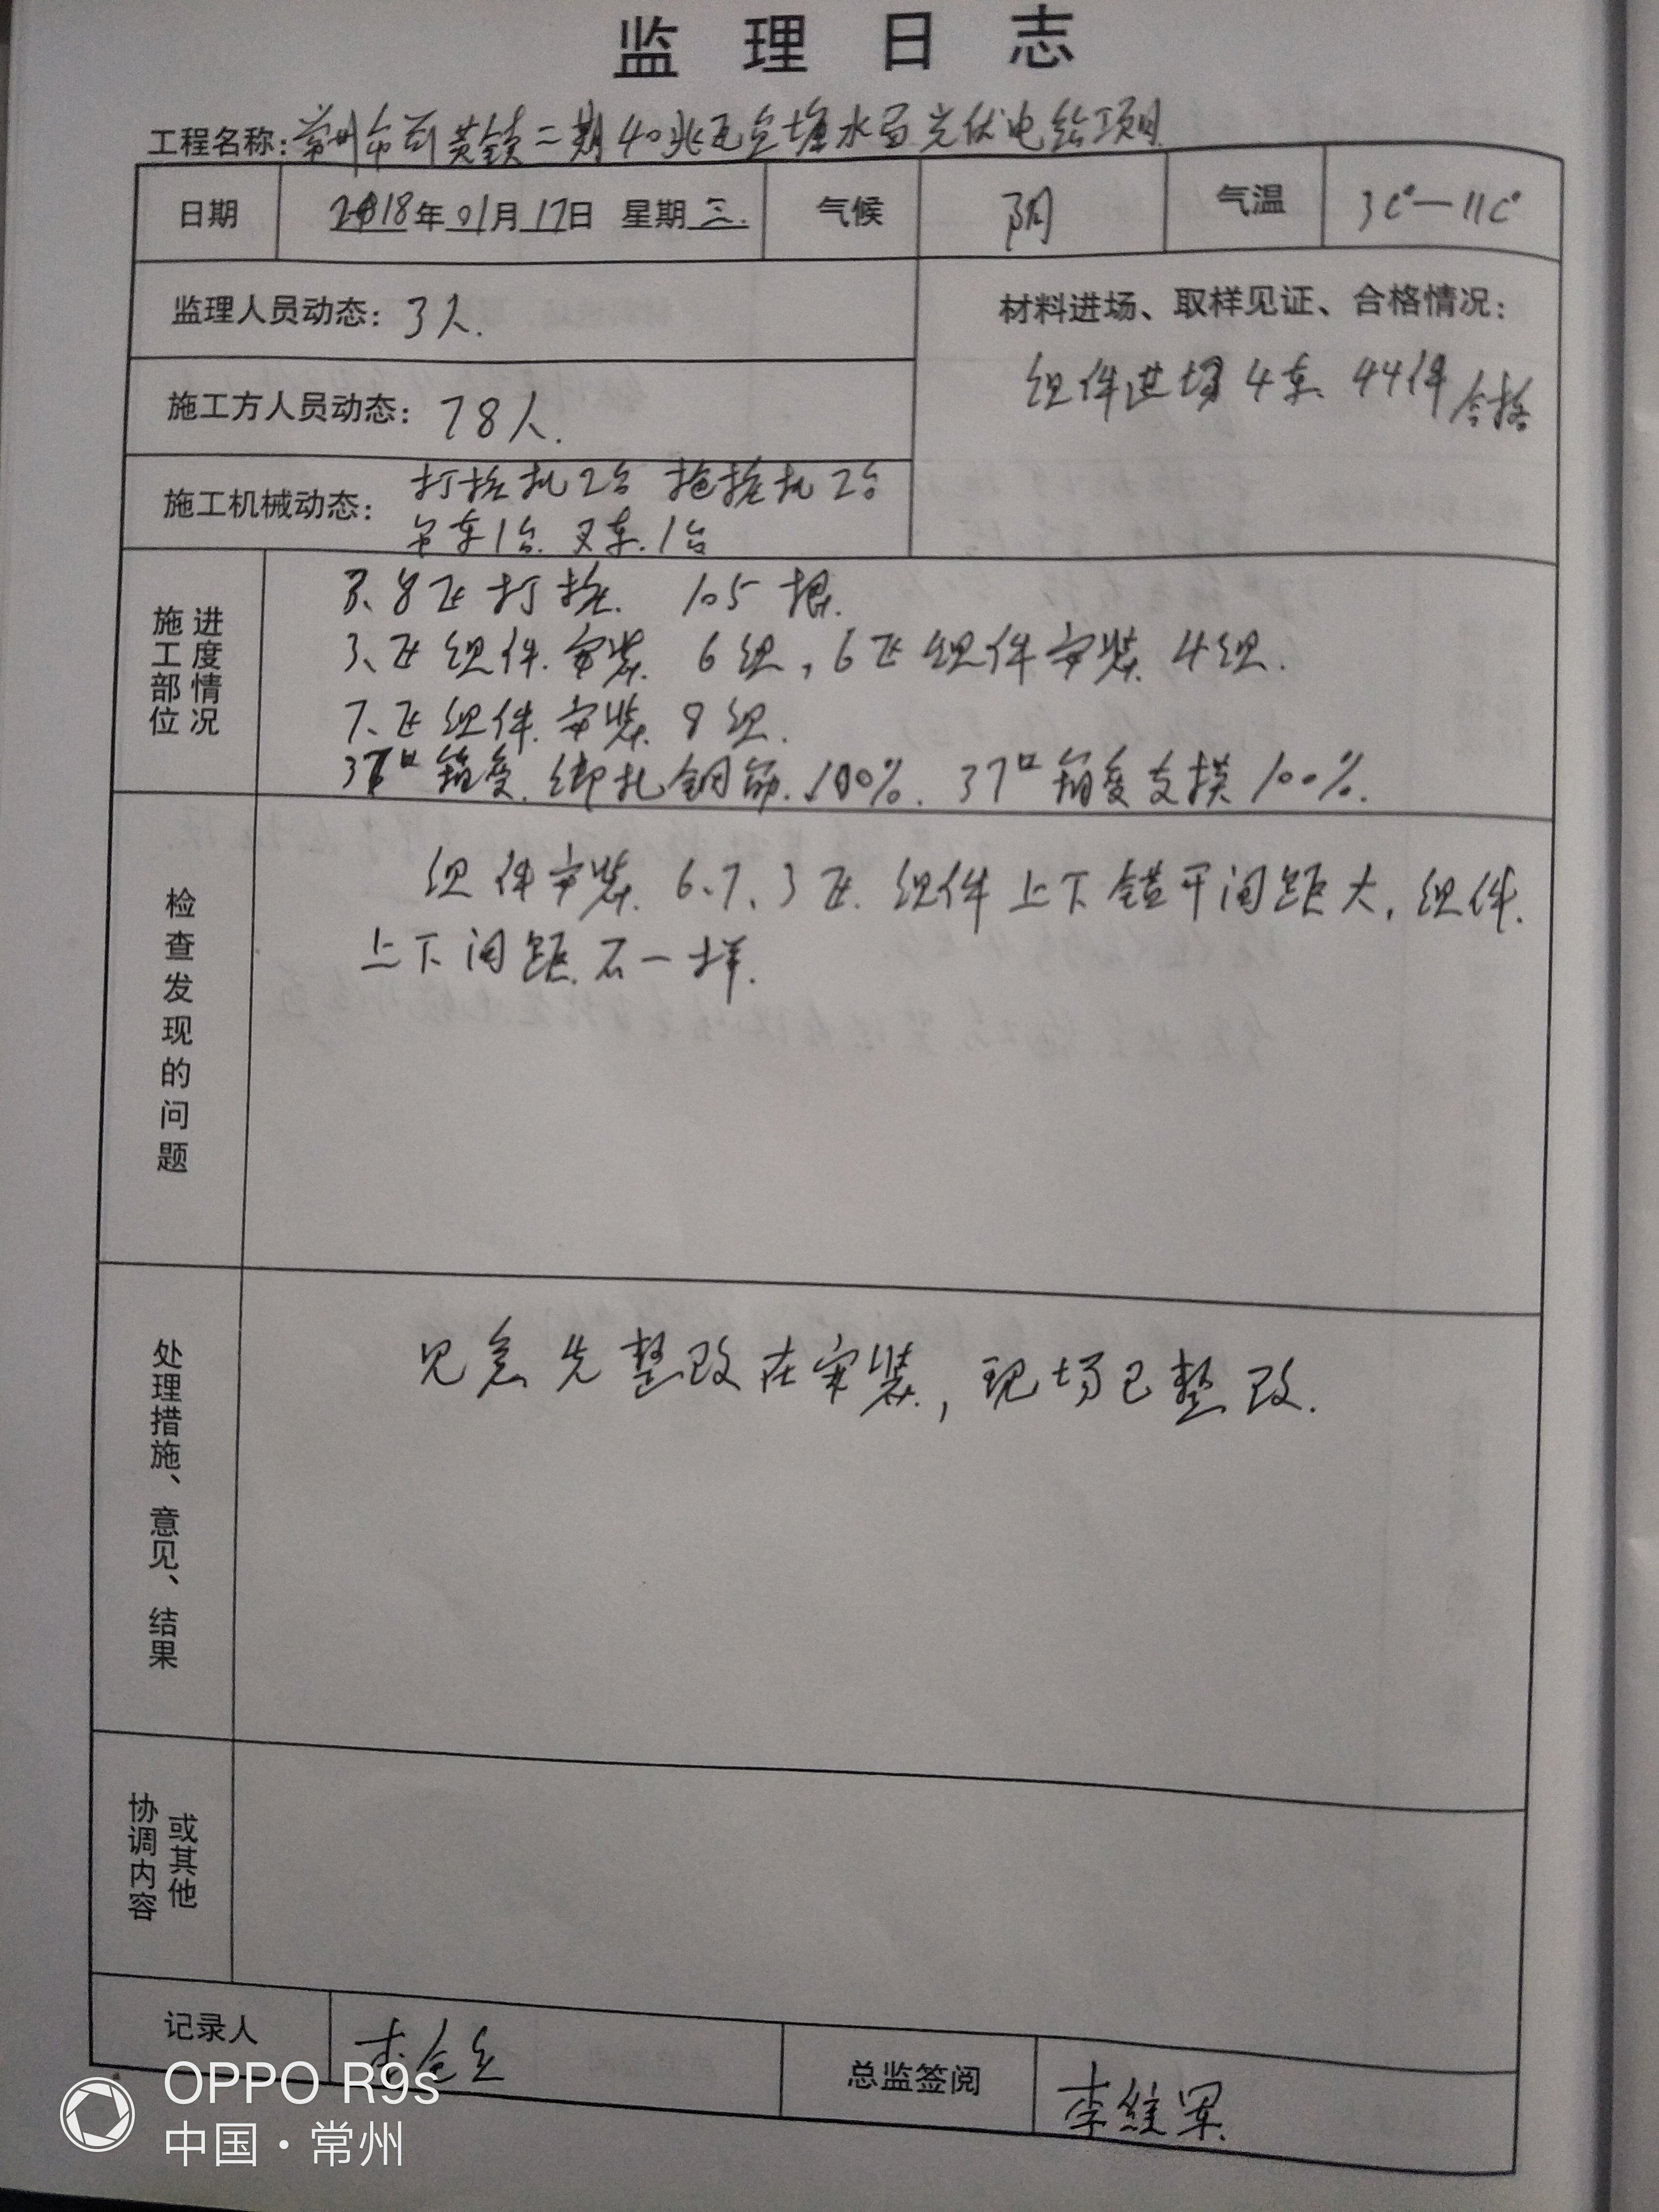 监理日志
工程名称：常州市 黄镇二期40兆瓦鱼塘水面光伏电站项目
日期 2018年01月17日 星期三. 气候 阴 气温 3C°—11C°
监理人员动态：3人.
材料进场、取样见证、合格情况：
组件进场4车 44件合格
施工方人员动态：78人.
施工机械动态：打桩机2台 拖桩机2台
吊车1台. 叉车.1台
施工部位 进度情况
8区打桩. 105根.
3、区组件.安装 6组，6区组件安装 4组.
7、区组件.安装 8组.
箱变.绑扎钢筋.100%. 37口箱变支模100%.
检查发现的问题
组件安装.6、7、3区.组件上下错开间距大，组件.
上下间距不一样.
处理措施、意见、结果
先整改在安装，现场已整改.
协调内容 或其他
记录人 李
总监签阅 李维军
OPPO R9s
中国·常州